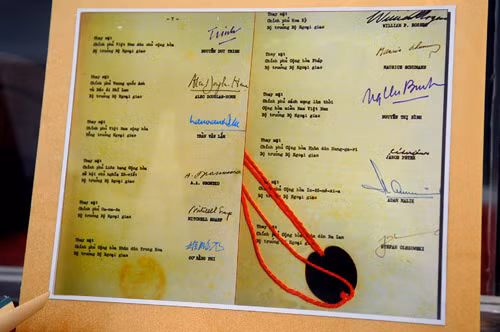 - 7 -
Thay mặt
Chính phủ Việt Nam dân chủ cộng hòa
Bộ trưởng Bộ Ngoại giao
NGUYỄN DUY TRINH
Thay mặt
Chính phủ Vương quốc Anh
và Bắc Ai Nhĩ Lan
Bộ trưởng Bộ Ngoại giao
ALEC DOUGLAS-HOME
Thay mặt
Chính phủ Việt Nam cộng hòa
Tổng trưởng Bộ Ngoại giao
TRẦN VĂN LẮM
Thay mặt
Chính phủ Liên bang cộng hòa
xã hội chủ nghĩa Xô-viết
Bộ trưởng Bộ Ngoại giao
A.A. GROMYKO
Thay mặt
Chính phủ Ca-na-đa
Bộ trưởng Bộ Ngoại giao
MITCHELL SHARP
Thay mặt
Chính phủ Cộng hòa Nhân dân Trung Hoa
Bộ trưởng Bộ Ngoại giao
CƠ BẰNG PHI
Thay mặt
Chính phủ Hoa Kỳ
Bộ trưởng Bộ Ngoại giao
WILLIAM P. ROGERS
Thay mặt
Chính phủ Cộng hòa Pháp
Bộ trưởng Bộ Ngoại giao
MAURICE SCHUMANN
Thay mặt
Chính phủ cách mạng lâm thời
Cộng hòa miền Nam Việt Nam
Bộ trưởng Bộ Ngoại giao
NGUYỄN THỊ BÌNH
Thay mặt
Chính phủ Cộng hòa Nhân dân Hung-ga-ri
Bộ trưởng Bộ Ngoại giao
JANOS PETER
Thay mặt
phủ Cộng hòa In-đô-nê-xi-a
Bộ trưởng Bộ Ngoại giao
ADAM MALIK
Thay mặt
Chính phủ Cộng hòa Nhân dân Ba Lan
Bộ trưởng Bộ Ngoại giao
STEFAN OLSZOWSKI